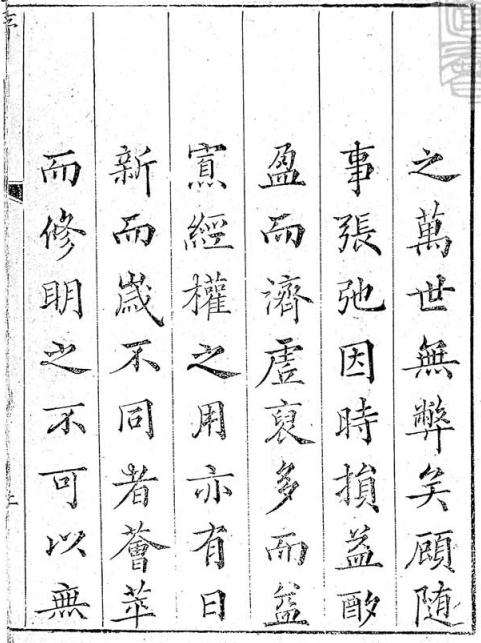 之萬世無弊矣顧随
事張弛因時損益酌
盈而濟虛裒多而益
寡經權之用亦有日
新而歳不同者薈萃
而修明之不可以無
序